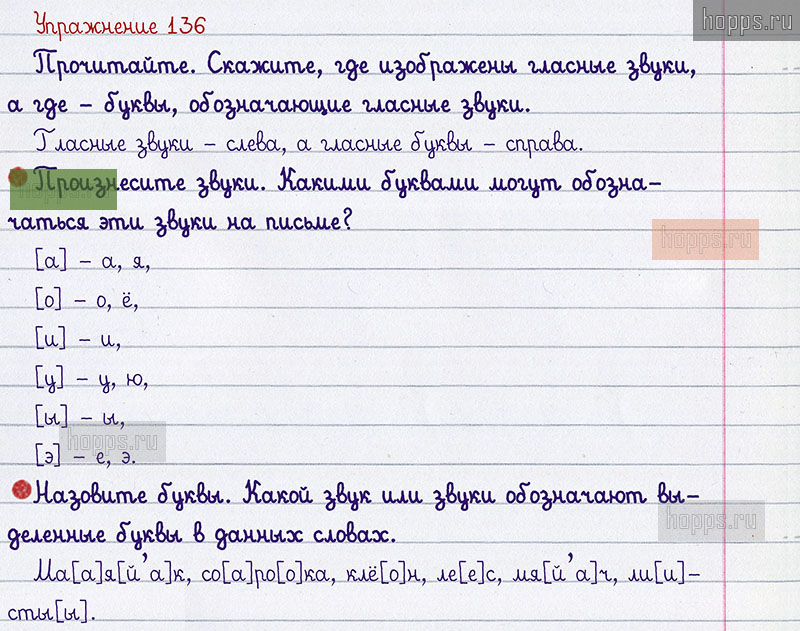 hopps.ru
Упражнение 136
Прочитайте. Скажите, где изображены гласные звуки,
а где – буквы, обозначающие гласные звуки.
Гласные звуки – слева, а гласные буквы – справа.
Произнесите звуки. Какими буквами могут обозна-
чаться эти звуки на письме?
hopps.ru
[а] – а, я,
[о] – о, ё,
[и] – и,
[у] – у, ю,
[ы] – ы,
hopps.ru
[э] – е, э.
Назовите буквы. Какой звук или звуки обозначают вы-
hopps.ru
деленные буквы в данных словах.
Ма[а]я[й’а]к, со[а]ро[о]ка, клё[о]н, ле[е]с, мя[й’а]ч, ли[и]-
сты[ы].